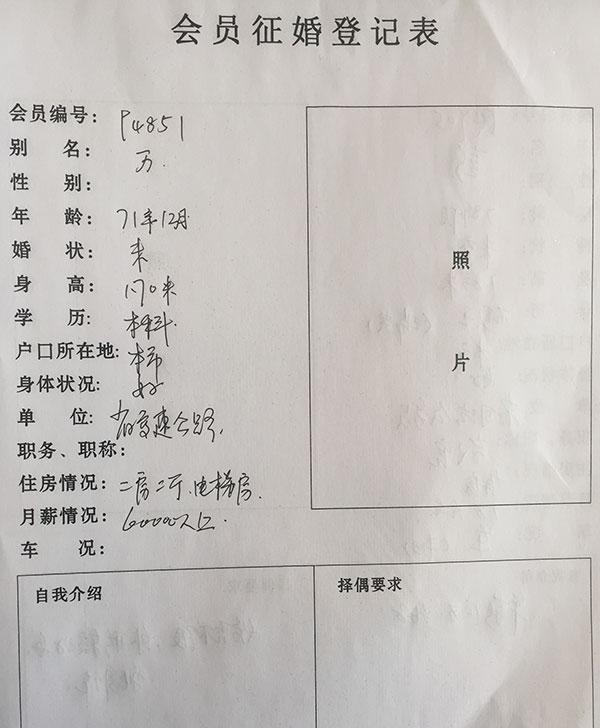 会员征婚登记表
会员编号: P4851
别 名: 万.
性 别:
年 龄: 71年12月
婚 状: 未
身 高: 1.70米
学 历: 本科.
户口所在地: 本市
身体状况: 好
单 位: 省高速公路.
职务、职称:
住房情况: 二房二厅.电梯房.
月薪情况: 60000以上.
车 况:
照
片
自我介绍
择偶要求